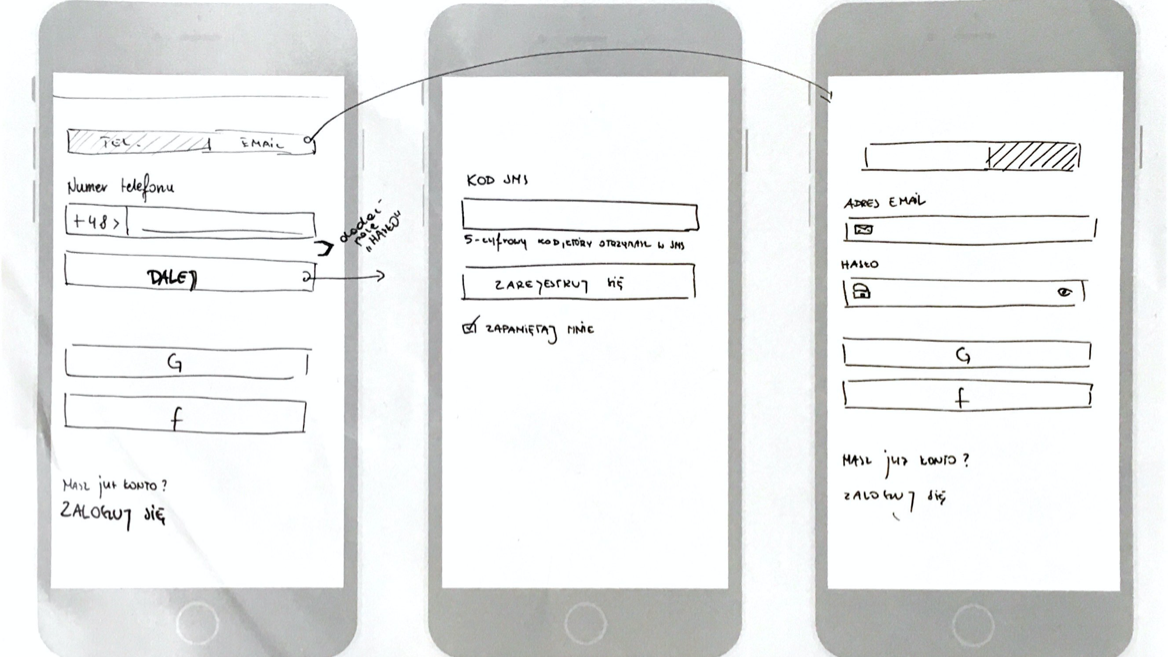 TEL.
EMAIL
Numer telefonu
+48 >
dodać
pole
„HASŁO"
DALEJ
G
f
MASZ już KONTO?
ZALOGUJ SIĘ
KOD SMS
5-cyfrowy KOD, KTÓRY OTRZYMAŁ W SMS
ZAREJESTRUJ SIĘ
ZAPAMIĘTAJ MNIE
ADRES EMAIL
HASŁO
G
f
MASZ już KONTO?
ZALOGUJ SIĘ